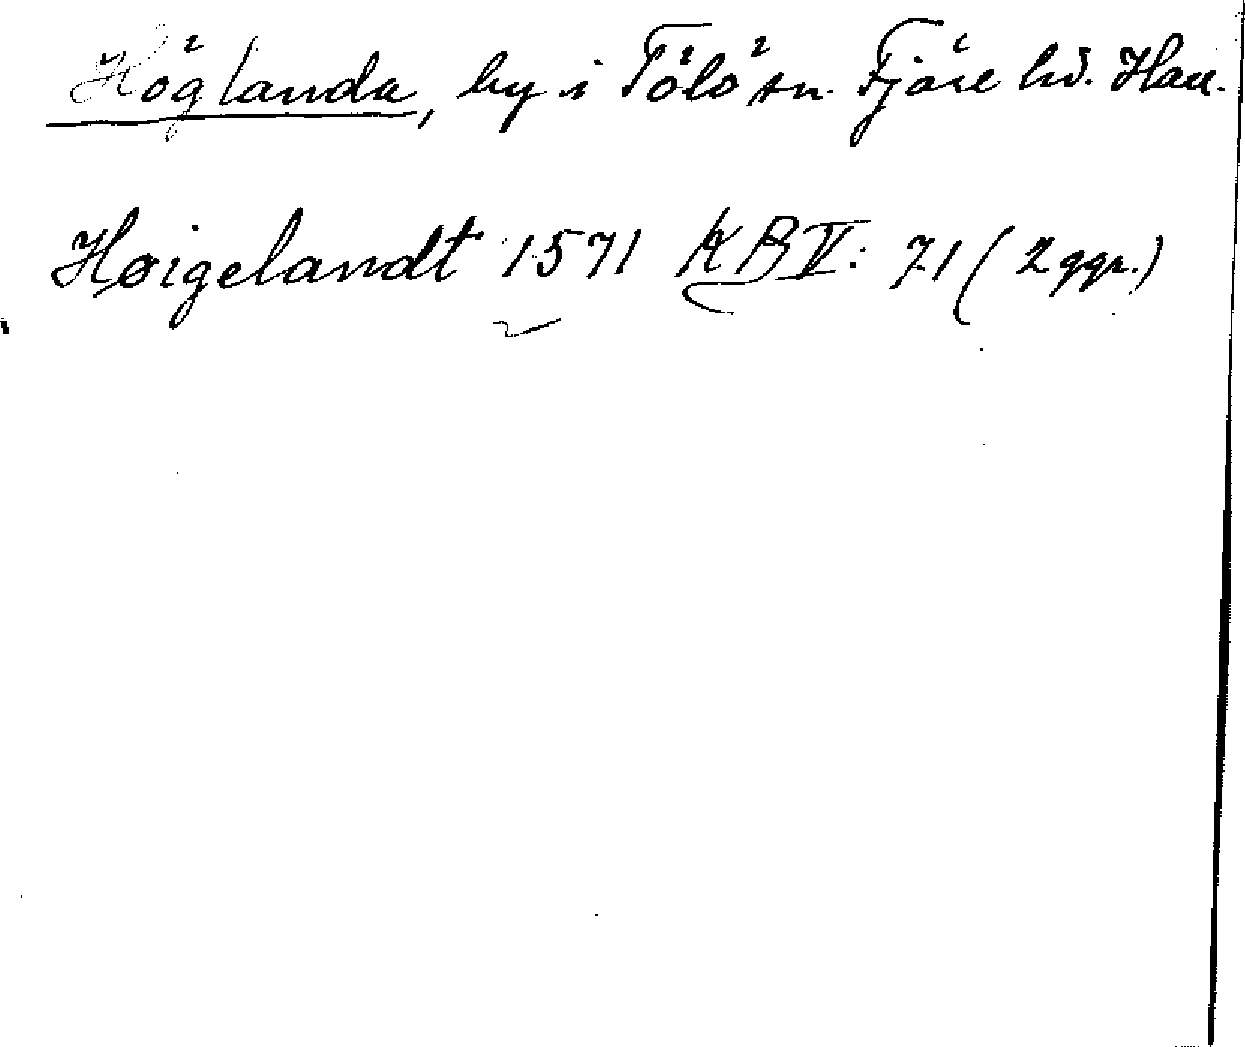 Höglanda, by i Tölö sn. Fjäre hd. Hall.
Høigelandt 1571 KB V: 71 (2 ggr.)